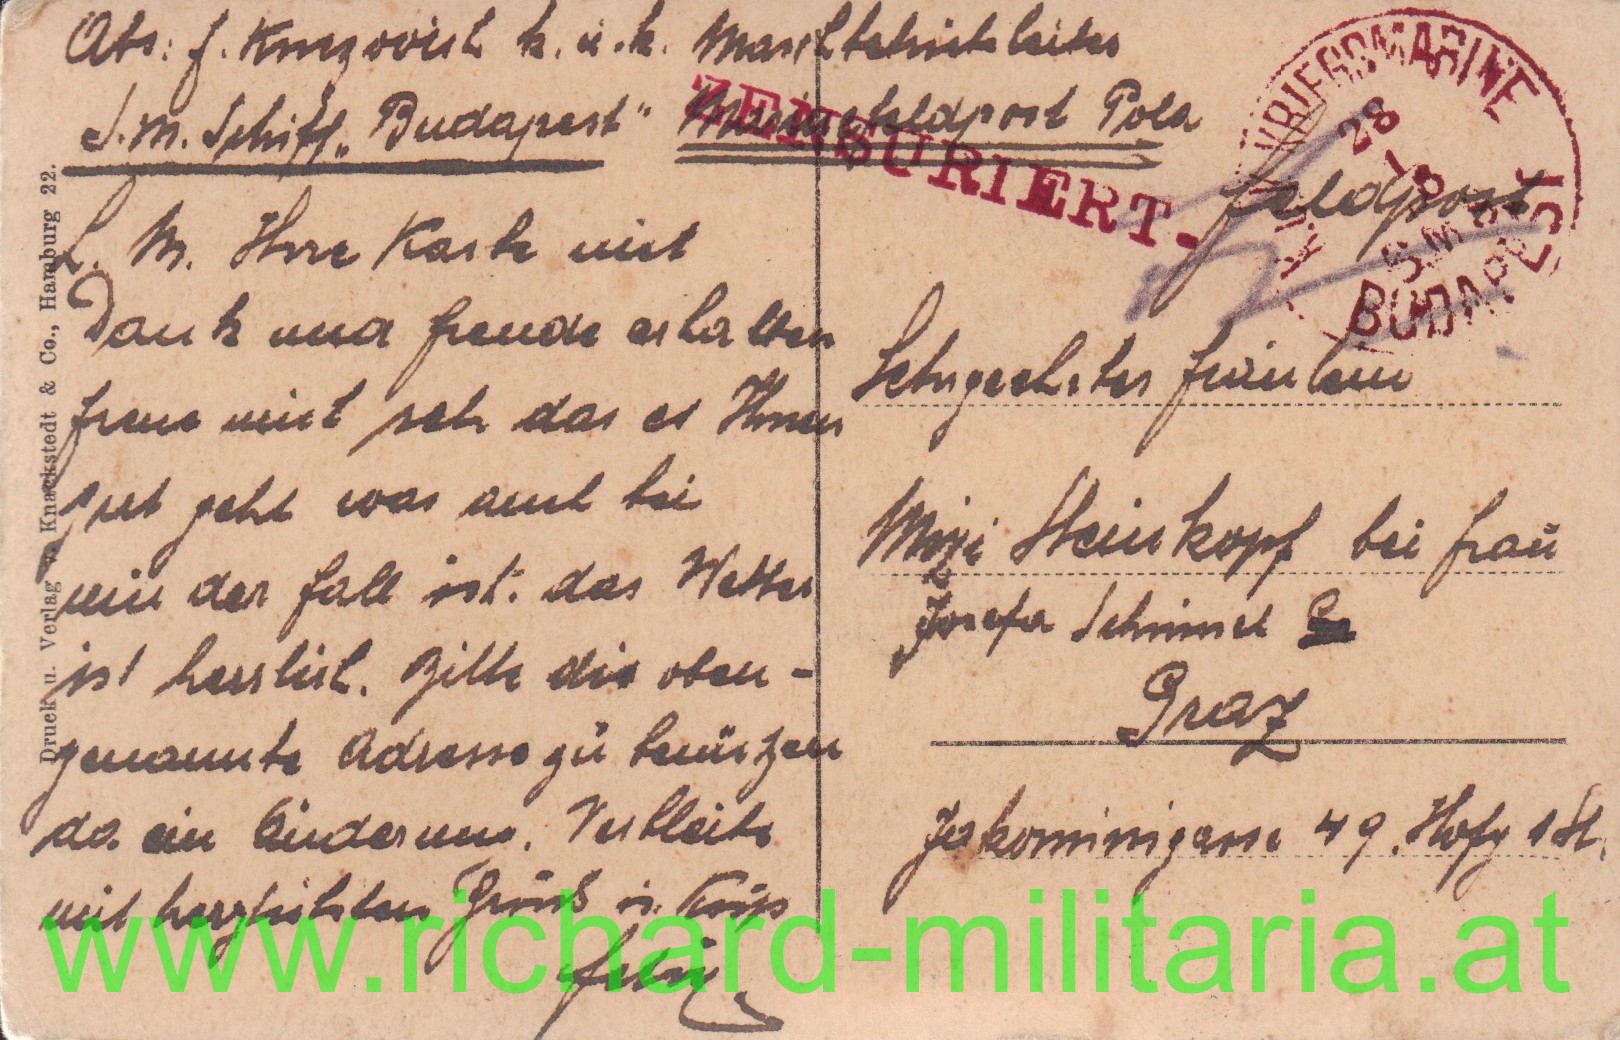 Abs: f. Knezovich k. u. k. Maschbetriebsleiter
S. M. Schiff „Budapest" Marinefeldpost Pola
ZENSURIERT.-
K.u.K. KRIEGSMARINE
28
S.M.S.
BUDAPEST
Feldpost
L. M. Ihre Karte mit
Dank und freude erhalten
freue mich seh das es Ihnen
gut geht was auch bei
mir der fall ist. das Wetter
ist herrlich. Bitte die oben-
genannte Adresse zu benützen
da ein Änderung. Verbleibe
mit herzlichsten Gruß u. Kuss
Felix
Sehrgeehrtes fräulein
Mizi Steinkopf bei frau
Josefa Schimmel
Graz
Jakominigasse 49. Hofg 1 St.
Druck u. Verlag v. Knackstedt & Co., Hamburg 22.
www.richard-militaria.at